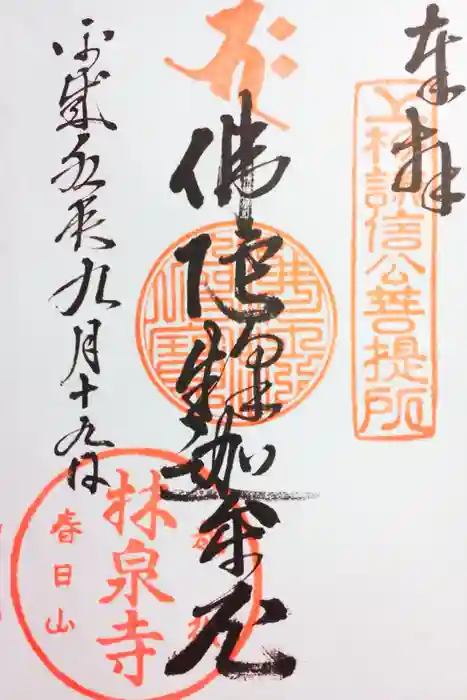 奉拝
上杉謙信公菩提所
佛陀釋迦牟尼
平成五年九月十九日
春日山
林泉寺